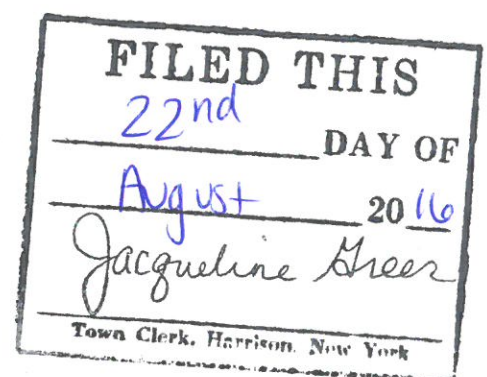 FILED THIS
22nd
DAY OF
August 2016
Jacqueline Greer
Town Clerk, Harrison, New York